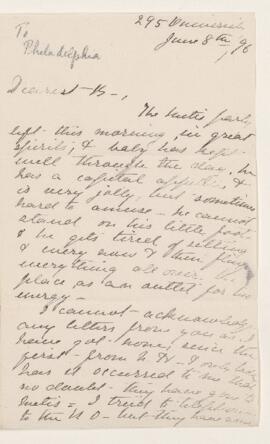 To
Philadelphia
295 University
June 8th, 96
Dearest B-,
The Metis party
left this morning, in great
spirits, & baby has kept
well through the day, he
has a capital appetite &
is very jolly, but sometimes
hard to amuse - he cannot
stand on his little foot
& he gets tired of sitting
& every now & then
everything all over the
place as an outlet for his
energy -
I cannot acknowledge
any letters from you as I
have got none, since the
first - from N.H. - I only
has it occurred to me that
no doubt they have gone to
Metis - I tried to
to the N.O - but they have